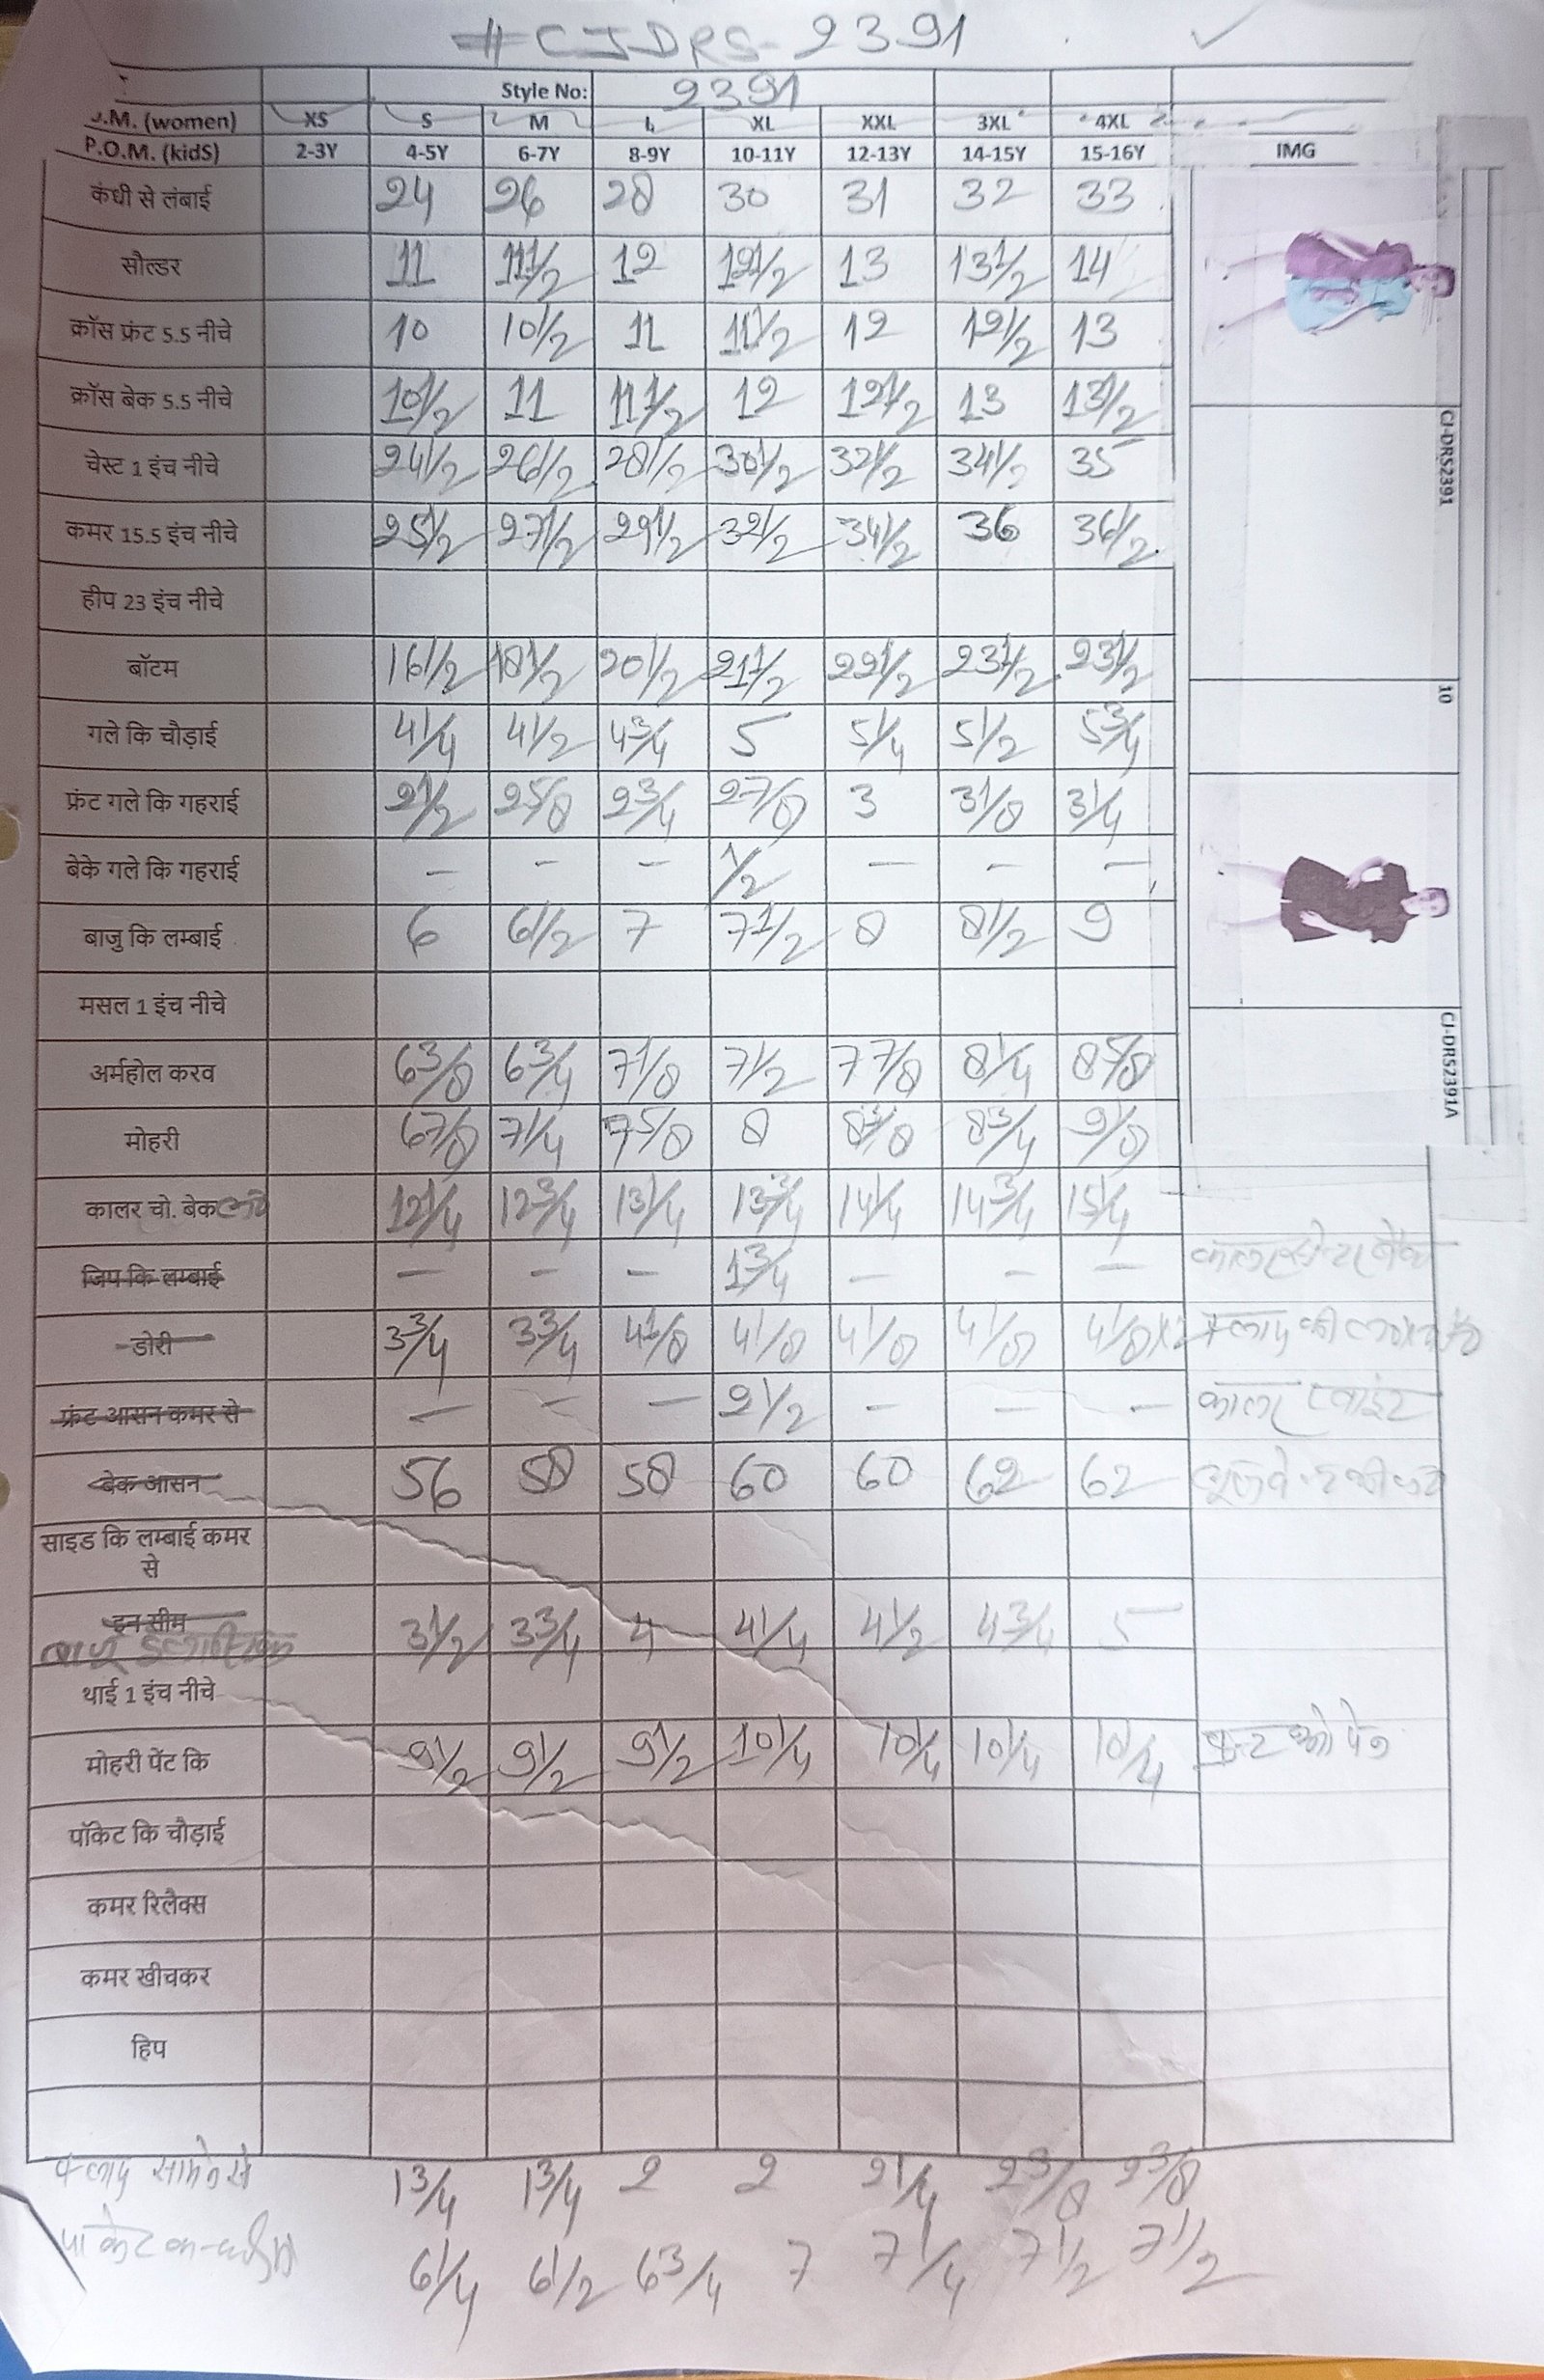 #CJDRS-2391
Style No: 2391
.M. (women) XS S M L XL XXL 3XL 4XL
P.O.M. (kidS) 2-3Y 4-5Y 6-7Y 8-9Y 10-11Y 12-13Y 14-15Y 15-16Y IMG
कंधी से लंबाई 24 26 28 30 31 32 33
सौल्डर 11 11 1/2 12 12 1/2 13 13 1/2 14
क्रॉस फ्रंट 5.5 नीचे 10 10 1/2 11 11 1/2 12 12 1/2 13
क्रॉस बेक 5.5 नीचे 10 1/2 11 11 1/2 12 12 1/2 13 13 1/2
चेस्ट 1 इंच नीचे 24 1/2 26 1/2 28 1/2 30 1/2 32 1/2 34 1/2 35
कमर 15.5 इंच नीचे 25 1/2 27 1/2 29 1/2 32 1/2 34 1/2 36 36 1/2
हीप 23 इंच नीचे
बॉटम 16 1/2 18 1/2 20 1/2 21 1/2 22 1/2 23 1/2 23 1/2
गले कि चौड़ाई 4 1/4 4 1/2 4 3/4 5 5 1/4 5 1/2 5 3/4
फ्रंट गले कि गहराई 2 1/2 2 5/8 2 3/4 2 7/8 3 3 1/8 3 1/4
बेके गले कि गहराई — — — 1/2 — — —
बाजु कि लम्बाई 6 6 1/2 7 7 1/2 8 8 1/2 9
मसल 1 इंच नीचे
अर्महोल करव 6 3/8 6 3/4 7 1/8 7 1/2 7 7/8 8 1/4 8 5/8
मोहरी 6 7/8 7 1/4 7 5/8 8 8 3/8 8 3/4 9 1/8
कालर चो. बेक 12 1/4 12 3/4 13 1/4 13 3/4 14 1/4 14 3/4 15 1/4
जिप कि लम्बाई — — — 1 3/4 — — —
डोरी 3 3/4 3 3/4 4 1/8 4 1/8 4 1/8 4 1/8 4 1/8
फ्रंट आसन कमर से — — — 2 1/2 — — — कालर
बेक आसन 56 58 58 60 60 62 62
साइड कि लम्बाई कमर
से
इन सीम 3 1/2 3 3/4 4 4 1/4 4 1/2 4 3/4 5
बाजू इलास्टिक
थाई 1 इंच नीचे
मोहरी पेंट कि 9 1/2 9 1/2 9 1/2 10 1/4 10 1/4 10 1/4 10 1/4
पॉकेट कि चौड़ाई
कमर रिलैक्स
कमर खीचकर
हिप
सामने से 1 3/4 1 3/4 2 2 2 1/4 2 3/8 2 3/8
पाकेट 6 1/4 6 1/2 6 3/4 7 7 1/4 7 1/2 7 1/2
CJ-DRS2391
10
CJ-DRS2391A